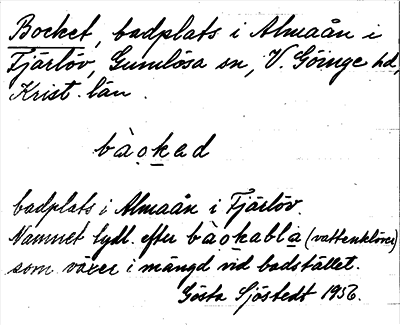 Bocket, badplats i Almaån i
Fjärlöv, Gumlösa sn, V. Göinge hd,
Krist. län.
bàọkad
badplats i Almaån i Fjärlöv.
Namnet tydl. efter bàọkabla (vattenklöver)
som växer i mängd vid badstället.
Gösta Sjöstedt 1956.